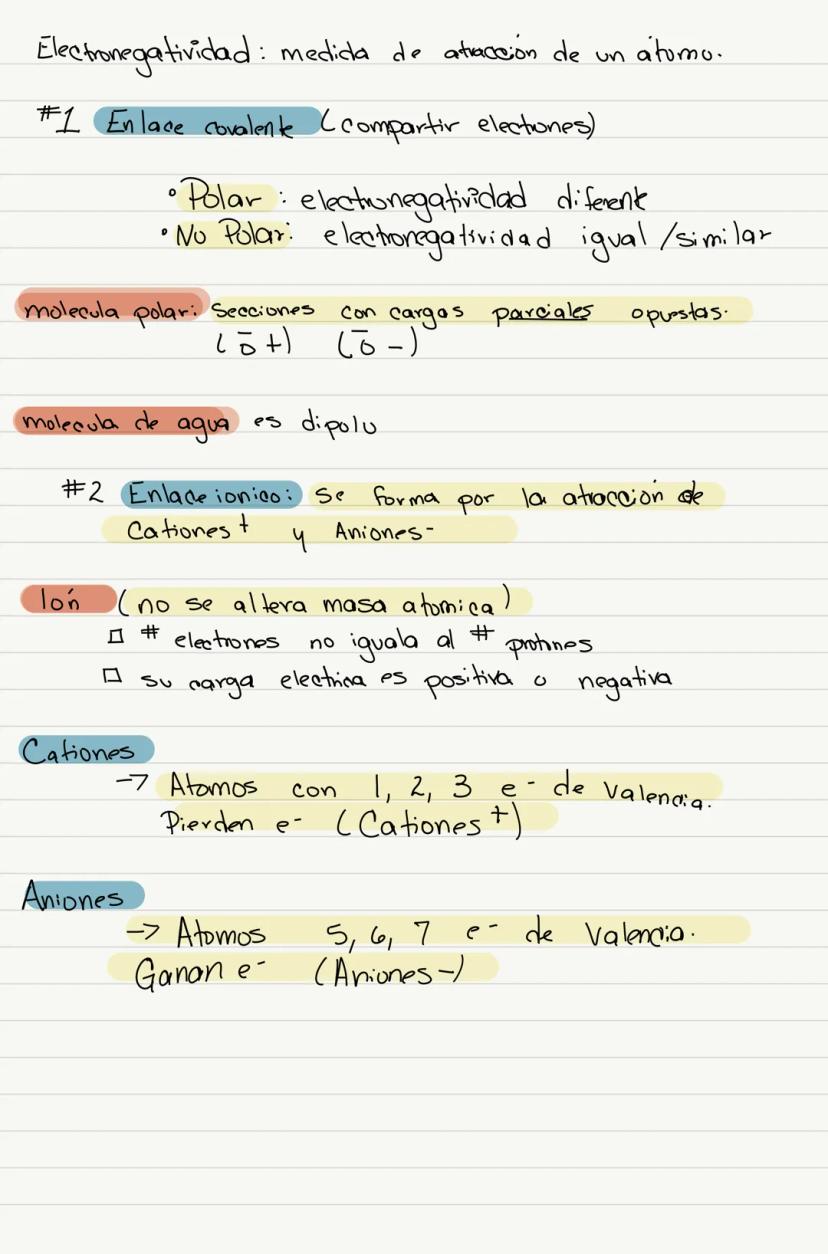 Electronegatividad: medida de atracción de un átomo.
#1 Enlace covalente (compartir electrones)
• Polar: electronegatividad diferente
• No Polar: electronegatividad igual/similar
molecula polar: Secciones con cargas parciales opuestas.
(δ+) (δ-)
molecula de agua es dipolo
#2 Enlace ionico: se forma por la atracción de
Cationes+ y Aniones-
Ión (no se altera masa atomica)
□ # electrones no iguala al # protones
□ su carga electrica es positiva o negativa
Cationes
→ Atomos con 1, 2, 3 e- de valencia.
Pierden e- (Cationes+)
Aniones
→ Atomos 5, 6, 7 e- de valencia.
Ganan e- (Aniones-)